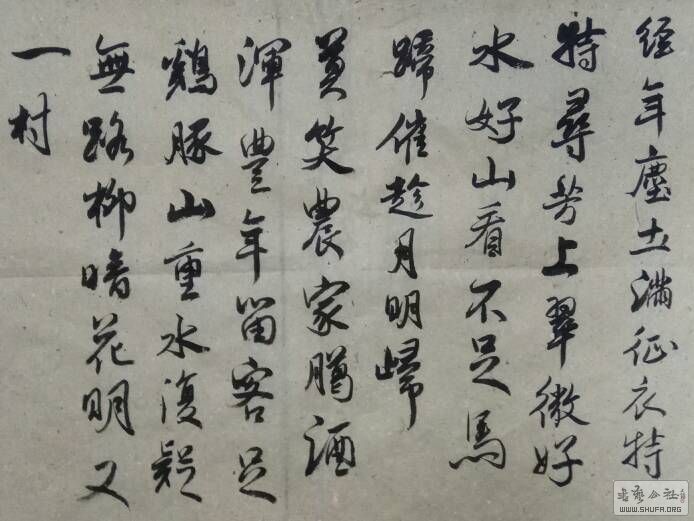 经年塵土满征衣特
特尋芳上翠微好
水好山看不足馬
蹄催趁月明歸
莫笑農家腊酒
渾豐年留客足
鷄豚山重水復疑
無路柳暗花明又
一村
书艺公社
WWW.SHUFA.ORG